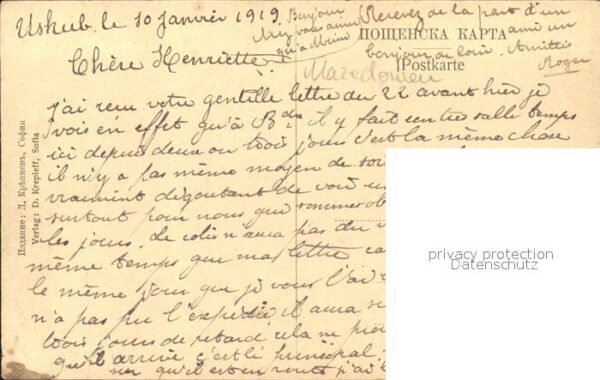 Uskub le 10 Janvier 1919
Bonjour
Avez vous aussi
qu'à Mimi
Recevez de la part d'un
ami un
bonjour de loin. Amitiés
Roger
ПОЩЕНСКА КАРТА
Postkarte
Mazedonien
Chère Henriette
j'ai reçu votre gentille lettre du 22 avant hier je
vois en effet qu'à il y fait un très salle temps
ici depuis deux ou trois jours c'est la même chose
il n'y a pas même moyen de
vraiment dégoutant de voir
surtout pour nous qui sommes
les jours. Le colis n'aura pas du
même temps que ma lettre
le même jour que je vous l'ai
n'a pas pu l'expédié il aura
trois jours de retard, cela ne
qu'il arrive c'est le principal.
qu'il est en route j'ai
Издание: Д. Кръпчевъ, София
Verlag: D. Krepieff, Sofia
privacy protection
Datenschutz